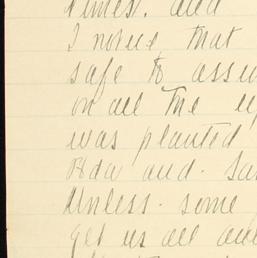 times. and
I notice that
safe to assu
on all the up
was planted
and. Sa
Unless. some
get us all out